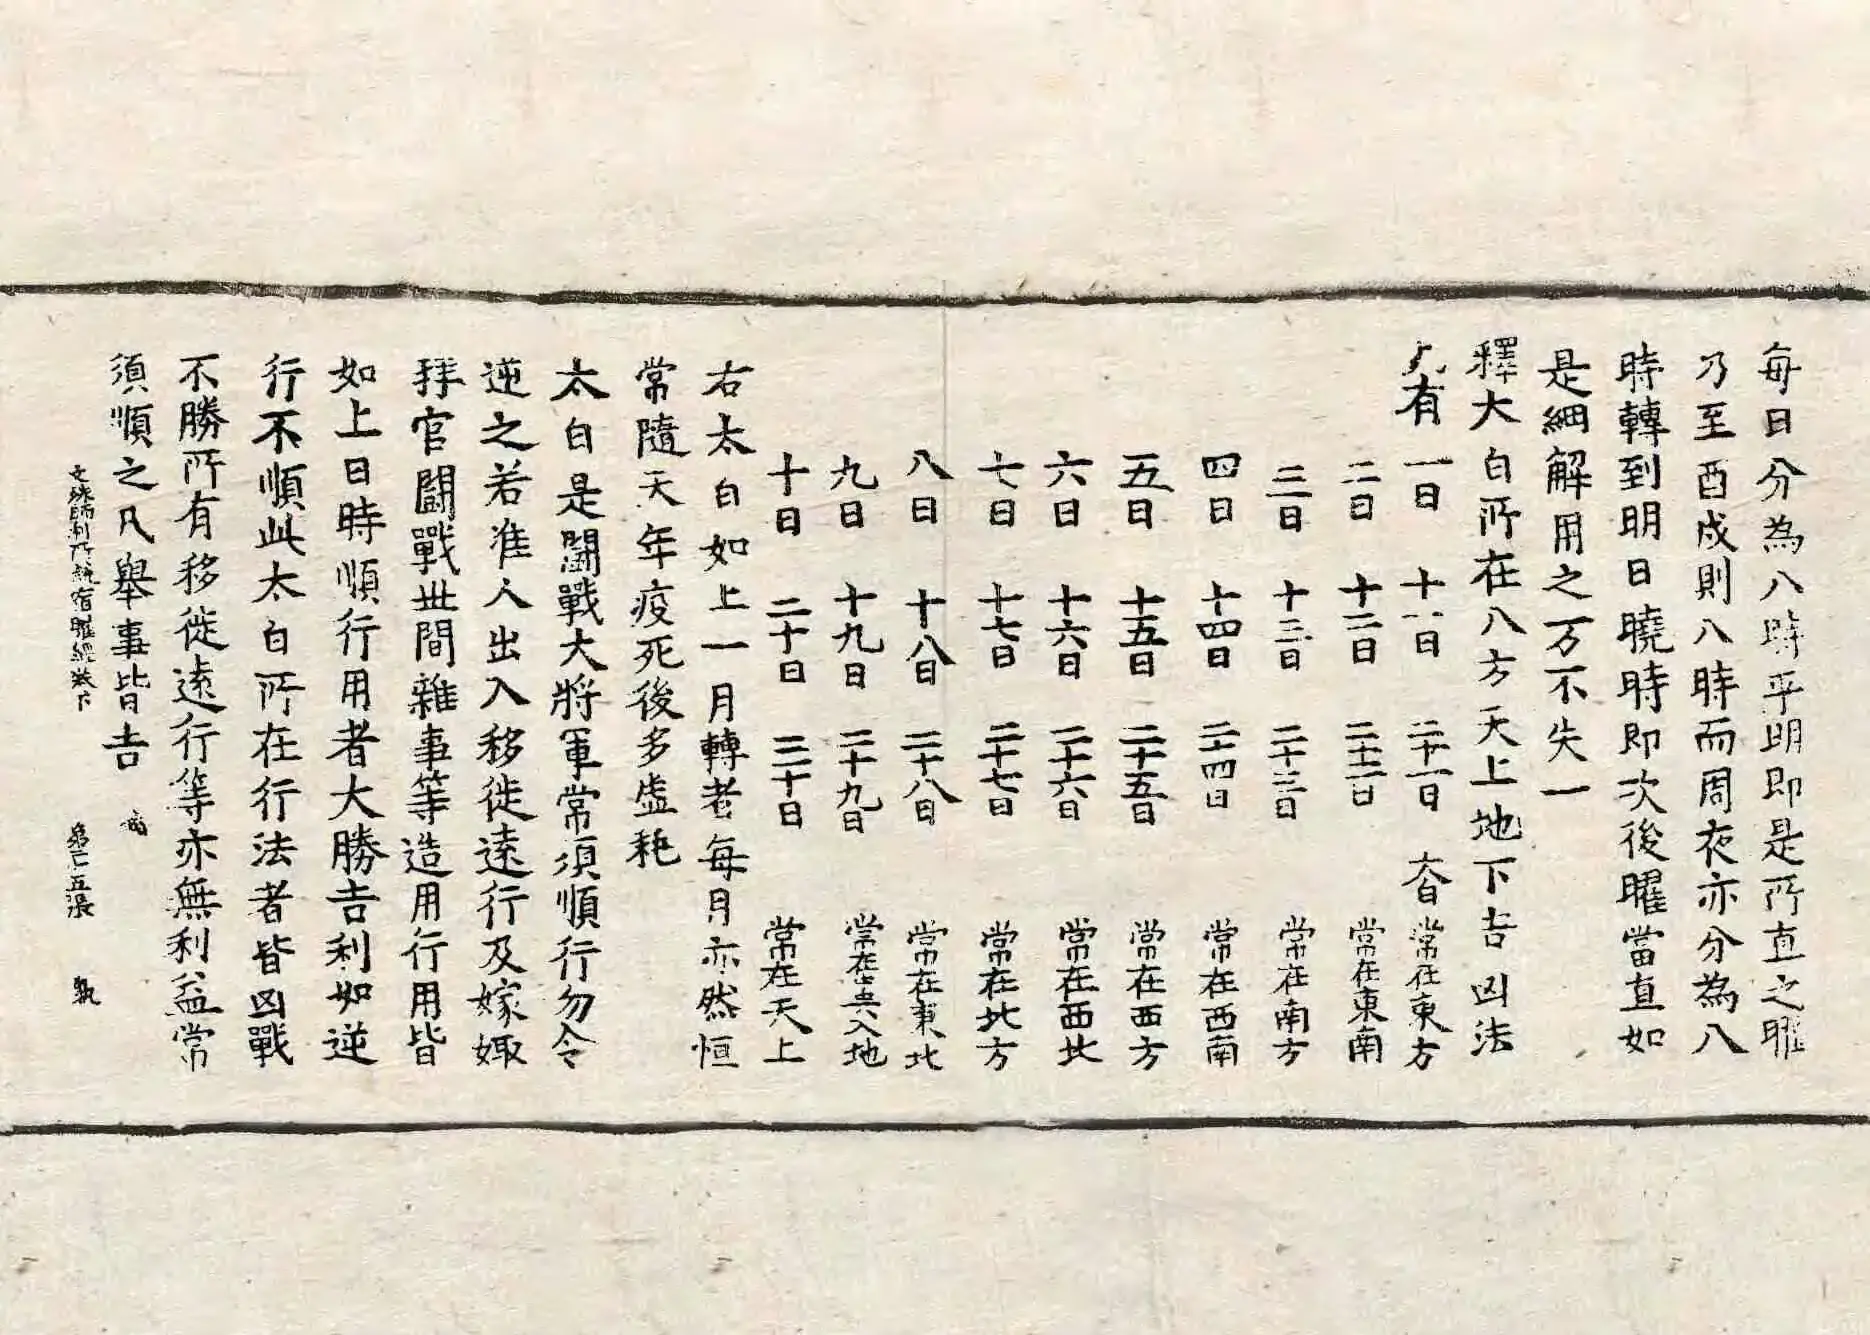 每日分為八時平明即是所直之曜
乃至酉戍則八時而周夜亦分為八
時轉到明日曉時即次後曜當直如
是細解用之万不失一
釋大白所在八方天上地下吉凶法
凡有一日 十一日 二十一日 太白常在東方
二日 十二日 二十二日 常在東南
三日 十三日 二十三日 常在南方
四日 十四日 二十四日 常在西南
五日 十五日 二十五日 常在西方
六日 十六日 二十六日 常在西北
七日 十七日 二十七日 常在北方
八日 十八日 二十八日 常在東北
九日 十九日 二十九日 常在中央入地
十日 二十日 三十日 常在天上
右太白如上一月轉老每月亦然恒
常隨天年疫死後多虛耗
太白是鬪戰大將軍常須順行勿令
逆之若准人出入移徙遠行及嫁娵
拜官鬪戰世間雜事等造用行用皆
如上日時順行用者大勝吉利如逆
行不順此太白所在行法者皆凶戰
不勝所有移徙遠行等亦無利益常
須順之凡舉事皆吉
文殊師利所說宿曜經卷下 第二五張